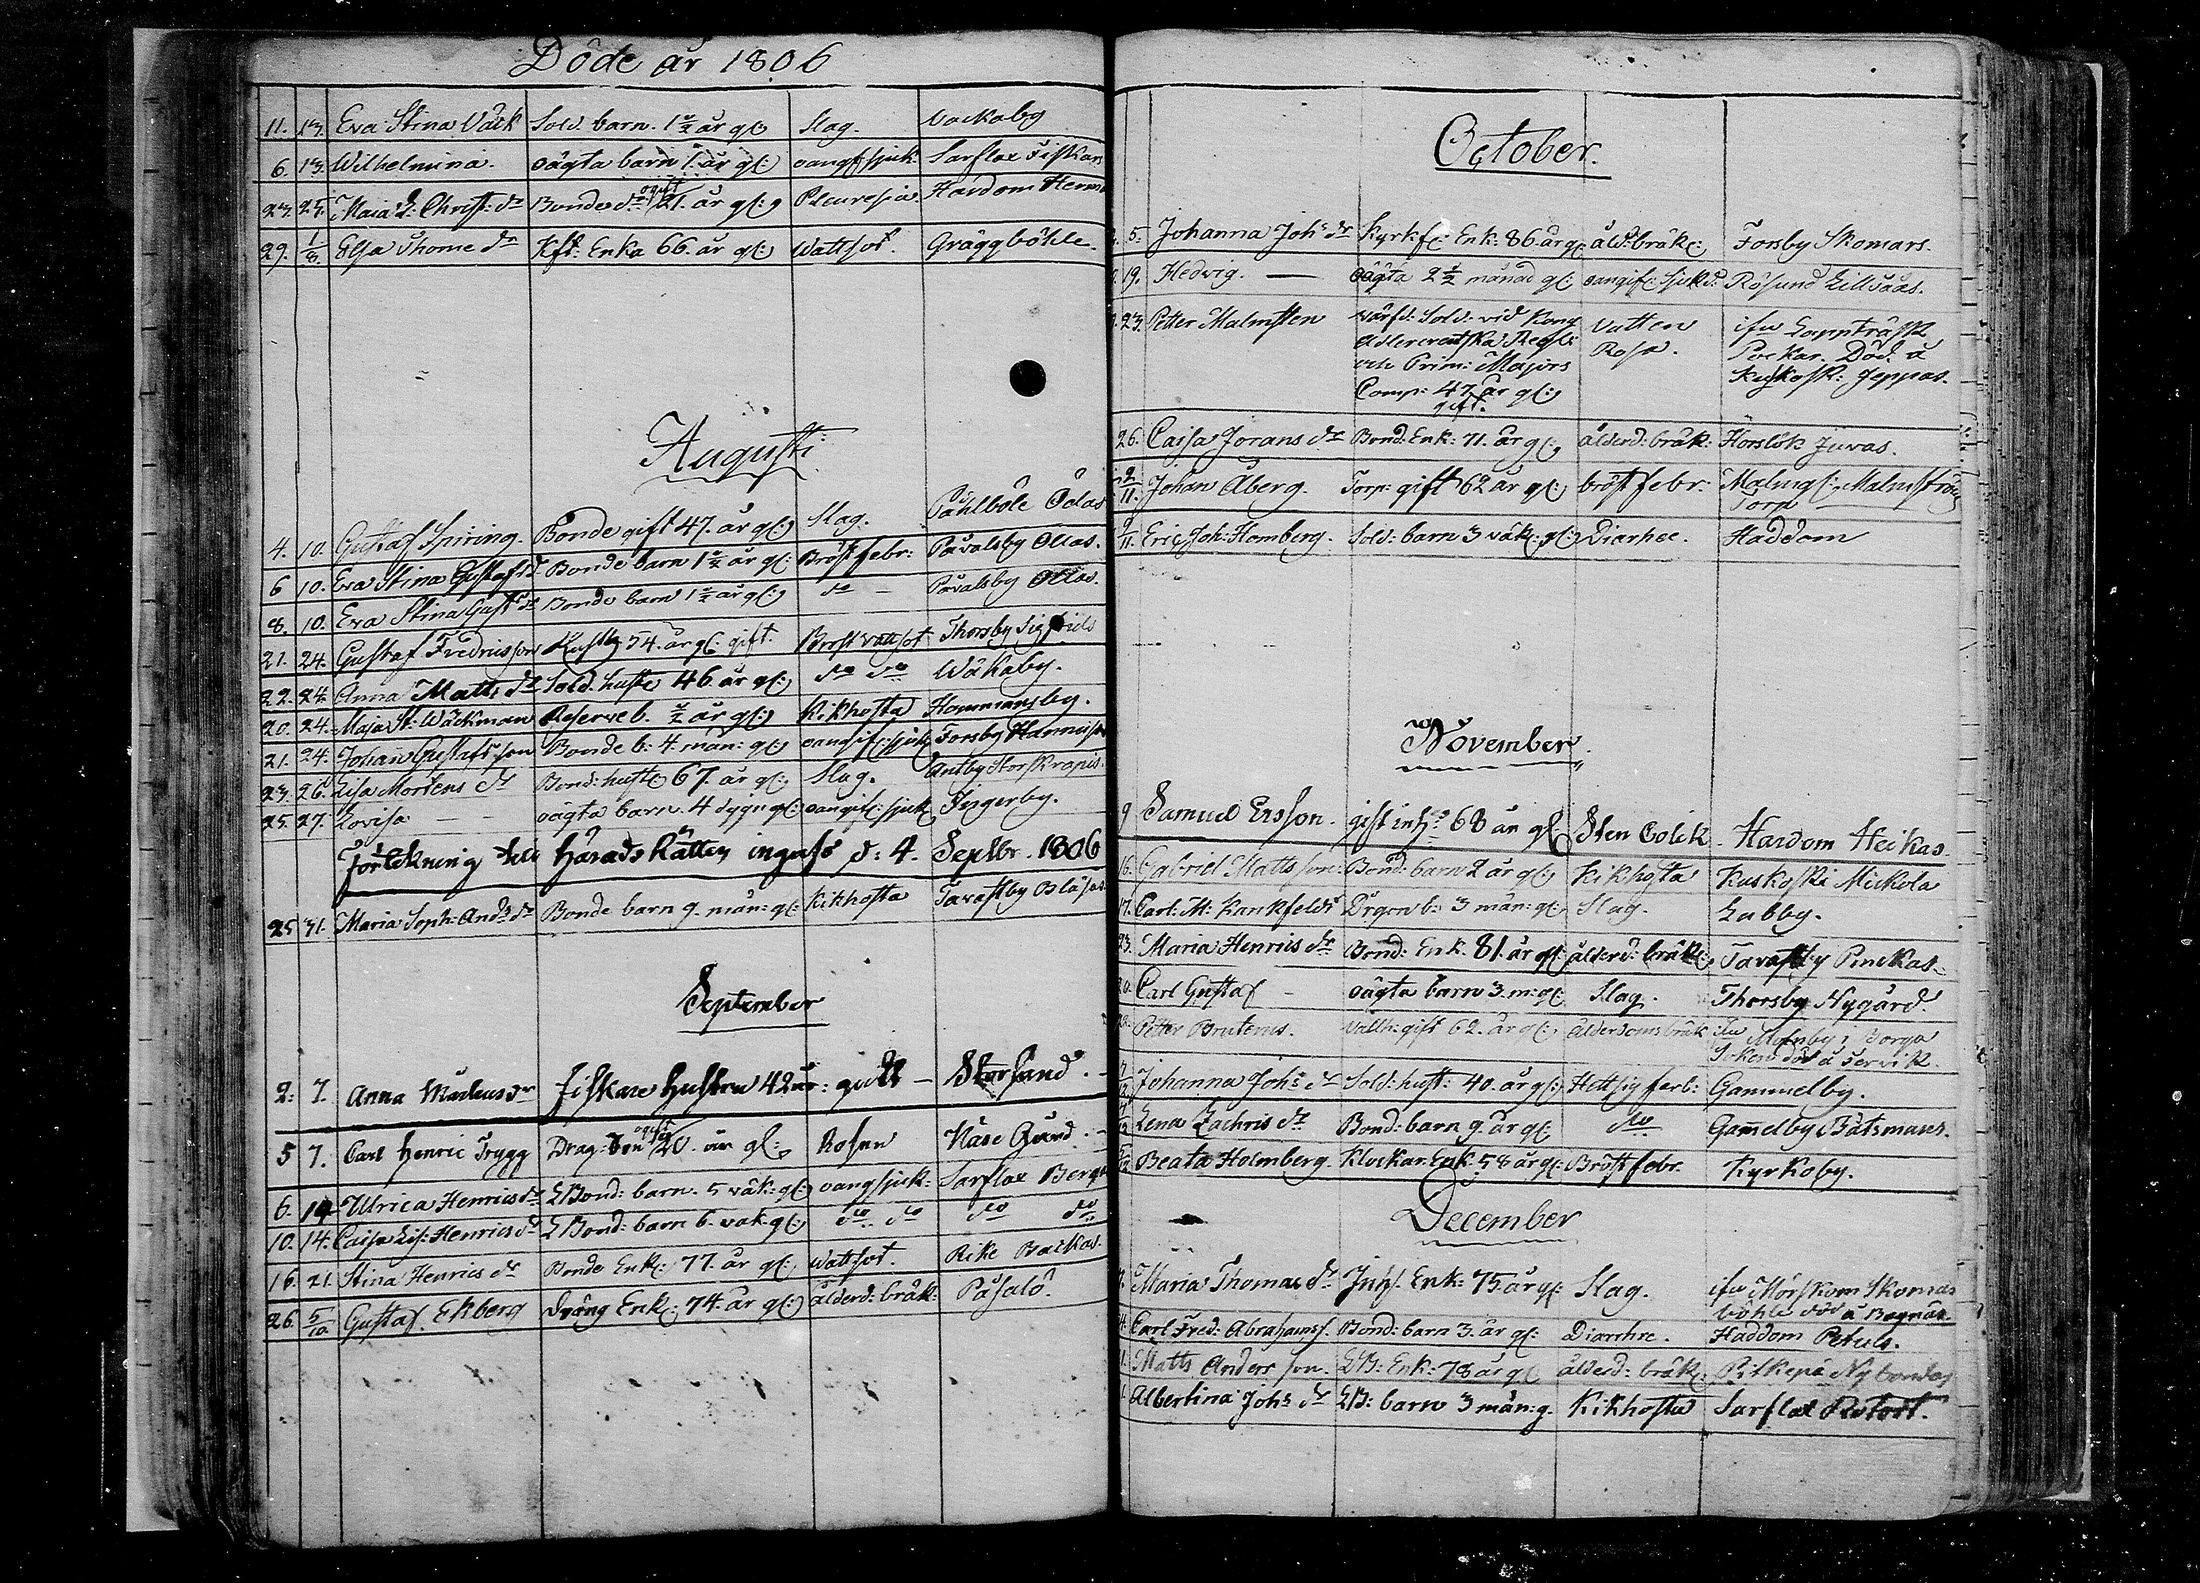 Döde år 1806
11. 13. Eva Stina Väck Sold. barn. 1 1/2 år gl: Slag. Vackaby
6. 13. Wilhelmina. oägta barn 1. år gl: oangf sjuk: Sarflax Fiskar
23. 25. Maia L: Christ: dr Bonde dr ogift 21. år gl: Pleuresia Hardom Herm
29. 1/8. Elsa Thome dr Kft: Enka 66. år gl: Wattsot Gräggböhle.
Augusti
4. 10. Gustaf Spiring. Bonde gift 47. år gl: Slag. Påhlböle Ödas
6 10. Eva Stina Gustafs d. Bonde barn 1 1/2 år gl: Bröst febr: Påvalsby Ollas.
8. 10. Eva Stina Gust: dr Bonde barn 1 1/2 år gl: do — Påvalsby Ollas.
21. 24. Gustaf Fredricsson 74. år gl: gift. Bröst Vattsot Thorsby Sigfrids
22. 24. Anna Matts dr Sold. hustr 46 år gl: do do Wäkaby.
20. 24. Maja St: Wäckman Reserveb. 1/2 år gl: Kikhosta Hommansby.
21. 24. Johan Gustafsson Bonde b: 4. mån: gl: oangif: sjuk Forsby Hannusas
23. 26. Lisa Mortens dr Bond: hustr 67. år gl: Slag. Antby Storskrapis.
25. 27. Lovisa — — oägta barn. 4 dygn gl: oangif: sjuk Jingerby.
Förtekning till HäradsRätten ingafs d: 4. Septbr. 1806
25 31. Maria Soph: Ands dr Bonde barn 9. mån: gl: Kikhosta Tavastby Blåsas
September
2. 7. Anna Mårtens dr Fiskare Hustru 42 år: Starsand.
5 7. Carl Henric Trygg Drag: ogift 20. år gl: Rosen Näse Gård.
6. 14. Ulrica Henrics dr LBond: barn. 5 väk: gl: oang sjuk: Sarflax Bergs
10. 14. Caisa Lis: Henrics dr LBond: barn 6. vak. gl: do do do do
16. 21. Stina Henrics dr Bonde Enk: 77. år gl: Wattsot. Rike Backas.
26. 5/10 Gustaf Ekberg dräng Enk: 74. år gl: ålderd: bräk: Påsalö.
October.
5. Johanna Johs dr Kyrk f: Enk: 86. år gl: åld: bräk: Forsby Skomars.
19. Hedvig. — oägta 2 1/2 månad gl: oangif: sjukd: Rösund Lillsåås.
23. Petter Malmsten värfd: Sold: vid Kong Vatten ifrn Lappträsk
Adlercreutska Regt: Rosa. Peckar. Död å
och Prim: Majors Kuskosk: Jeppas.
Comp: 47 år gl:
gift.
26. Caisa Jorans dr Bond: Enk: 71. år gl: ålderd: bräk: Horslök Juvas.
2/11. Johan Åberg. Torp: gift 62 år gl: bröst febr: Malmg: Malmström
Torp
9/11. Eric Joh: Homberg. Sold: barn 3 väk: gl: Diarhee. Haddom
November.
9 Samuel Ersson. gift inhs 68 år gl: Sten Colik Hardom Heikas
16. Gabriel Matts son: Bond: barn 2 år gl: Kikhosta Kuskoski Mickola
17. Carl: M: Kankfeldt Drgon b: 3 mån: gl: Slag. Labby.
23. Maria Henrics dr Bond: Enk. 81. år gl: ålderd: bräk: Tavastby Pinckas.
20. Carl Gustaf — oägta barn 3. m: gl: Slag. Thorsby Nygård.
Petter Bruterus. Vallh: gift 62. år gl: ålderdoms bräk ifrn i Borgå
Soken död å Tervik.
7/12 Johanna Johs dr Sold: hust: 40. år gl: Hettsig feb: Gammelby.
7/12 Lena Zachris dr Bond: barn 9. år gl do Gamelby Båtsmans.
12 Beata Holmberg Klockar. Enk. 58 år gl: Bröst febr. Kyrkoby.
December
Maria Thomas dr Inhs. Enk: 75. år gl: Slag. ifrn Mörskom Skomar
böhle död å Bagnäs.
Carl Fred: Abrahams s. Bond: barn 3. år gl: Diarrhre. Haddom Petuls.
Matts Andersson. LB: Enk: 78 år gl ålderd: bräk: Pitkepä Nybondas
Albertina Johs dr LB: barn 3 mån: g. Kikhosta Sarflax Rotort.